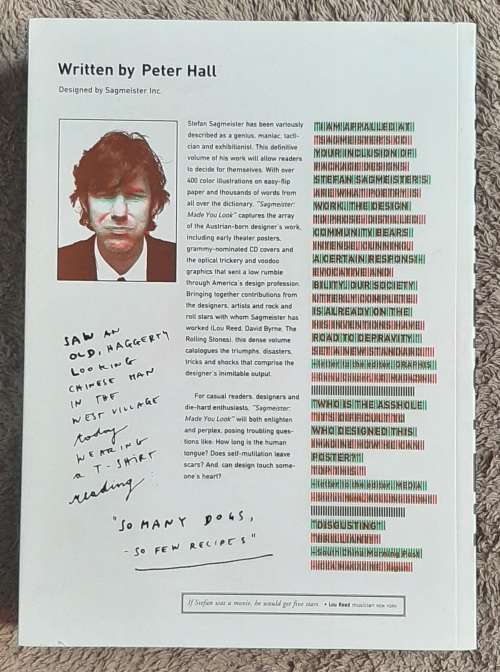 Written by Peter Hall
Designed by Sagmeister Inc.
Stefan Sagmeister has been variously
described as a genius, maniac, tacti-
cian and exhibitionist. This definitive
volume of his work will allow readers
to decide for themselves. With over
400 color illustrations on easy-flip
paper and thousands of words from
all over the dictionary, "Sagmeister:
Made You Look" captures the array
of the Austrian-born designer's work,
including early theater posters,
grammy-nominated CD covers and
the optical trickery and voodoo
graphics that sent a low rumble
through America's design profession.
Bringing together contributions from
the designers, artists and rock and
roll stars with whom Sagmeister has
worked (Lou Reed, David Byrne, The
Rolling Stones), this dense volume
catalogues the triumphs, disasters,
tricks and shocks that comprise the
designer's inimitable output.
For casual readers, designers and
die-hard enthusiasts, "Sagmeister:
Made You Look" will both enlighten
and perplex, posing troubling ques-
tions like: How long is the human
tongue? Does self-mutilation leave
scars? And, can design touch some-
one's heart?
SAW AN
OLD, HAGGERTY
LOOKING
CHINESE MAN
IN THE
WEST VILLAGE
today
WEARING
a T-SHIRT
reading
"SO MANY DOGS,
- SO FEW RECIPES"
"I AM APPALLED AT
"SAGMEISTER'S CD
YOUR INCLUSION OF
PACKAGE DESIGNS
STEFAN SAGMEISTER'S
ARE WHAT POETRY IS
WORK. THE DESIGN
TO PROSE: DISTILLED,
COMMUNITY BEARS
INTENSE, CUNNING,
A CERTAIN RESPONSI-
EVOCATIVE AND
BILITY. OUR SOCIETY
UTTERLY COMPLETE.
IS ALREADY ON THE
HIS INVENTIONS HAVE
ROAD TO DEPRAVITY."
SET A NEW STANDARD."
–letter to the editor, GRAPHIS
I.D. MAGAZINE
"WHO IS THE ASSHOLE
"IT'S DIFFICULT TO
WHO DESIGNED THIS
IMAGINE HOW HE CAN
POSTER?"
TOP THIS."
–letter to the editor, MEDIA
ROLLING STONE
"DISGUSTING"
"BRILLIANT!"
–South China Morning Post
–IDEA MAGAZINE, Japan
If Stefan was a movie, he would get five stars. • Lou Reed MUSICIAN NEW YORK